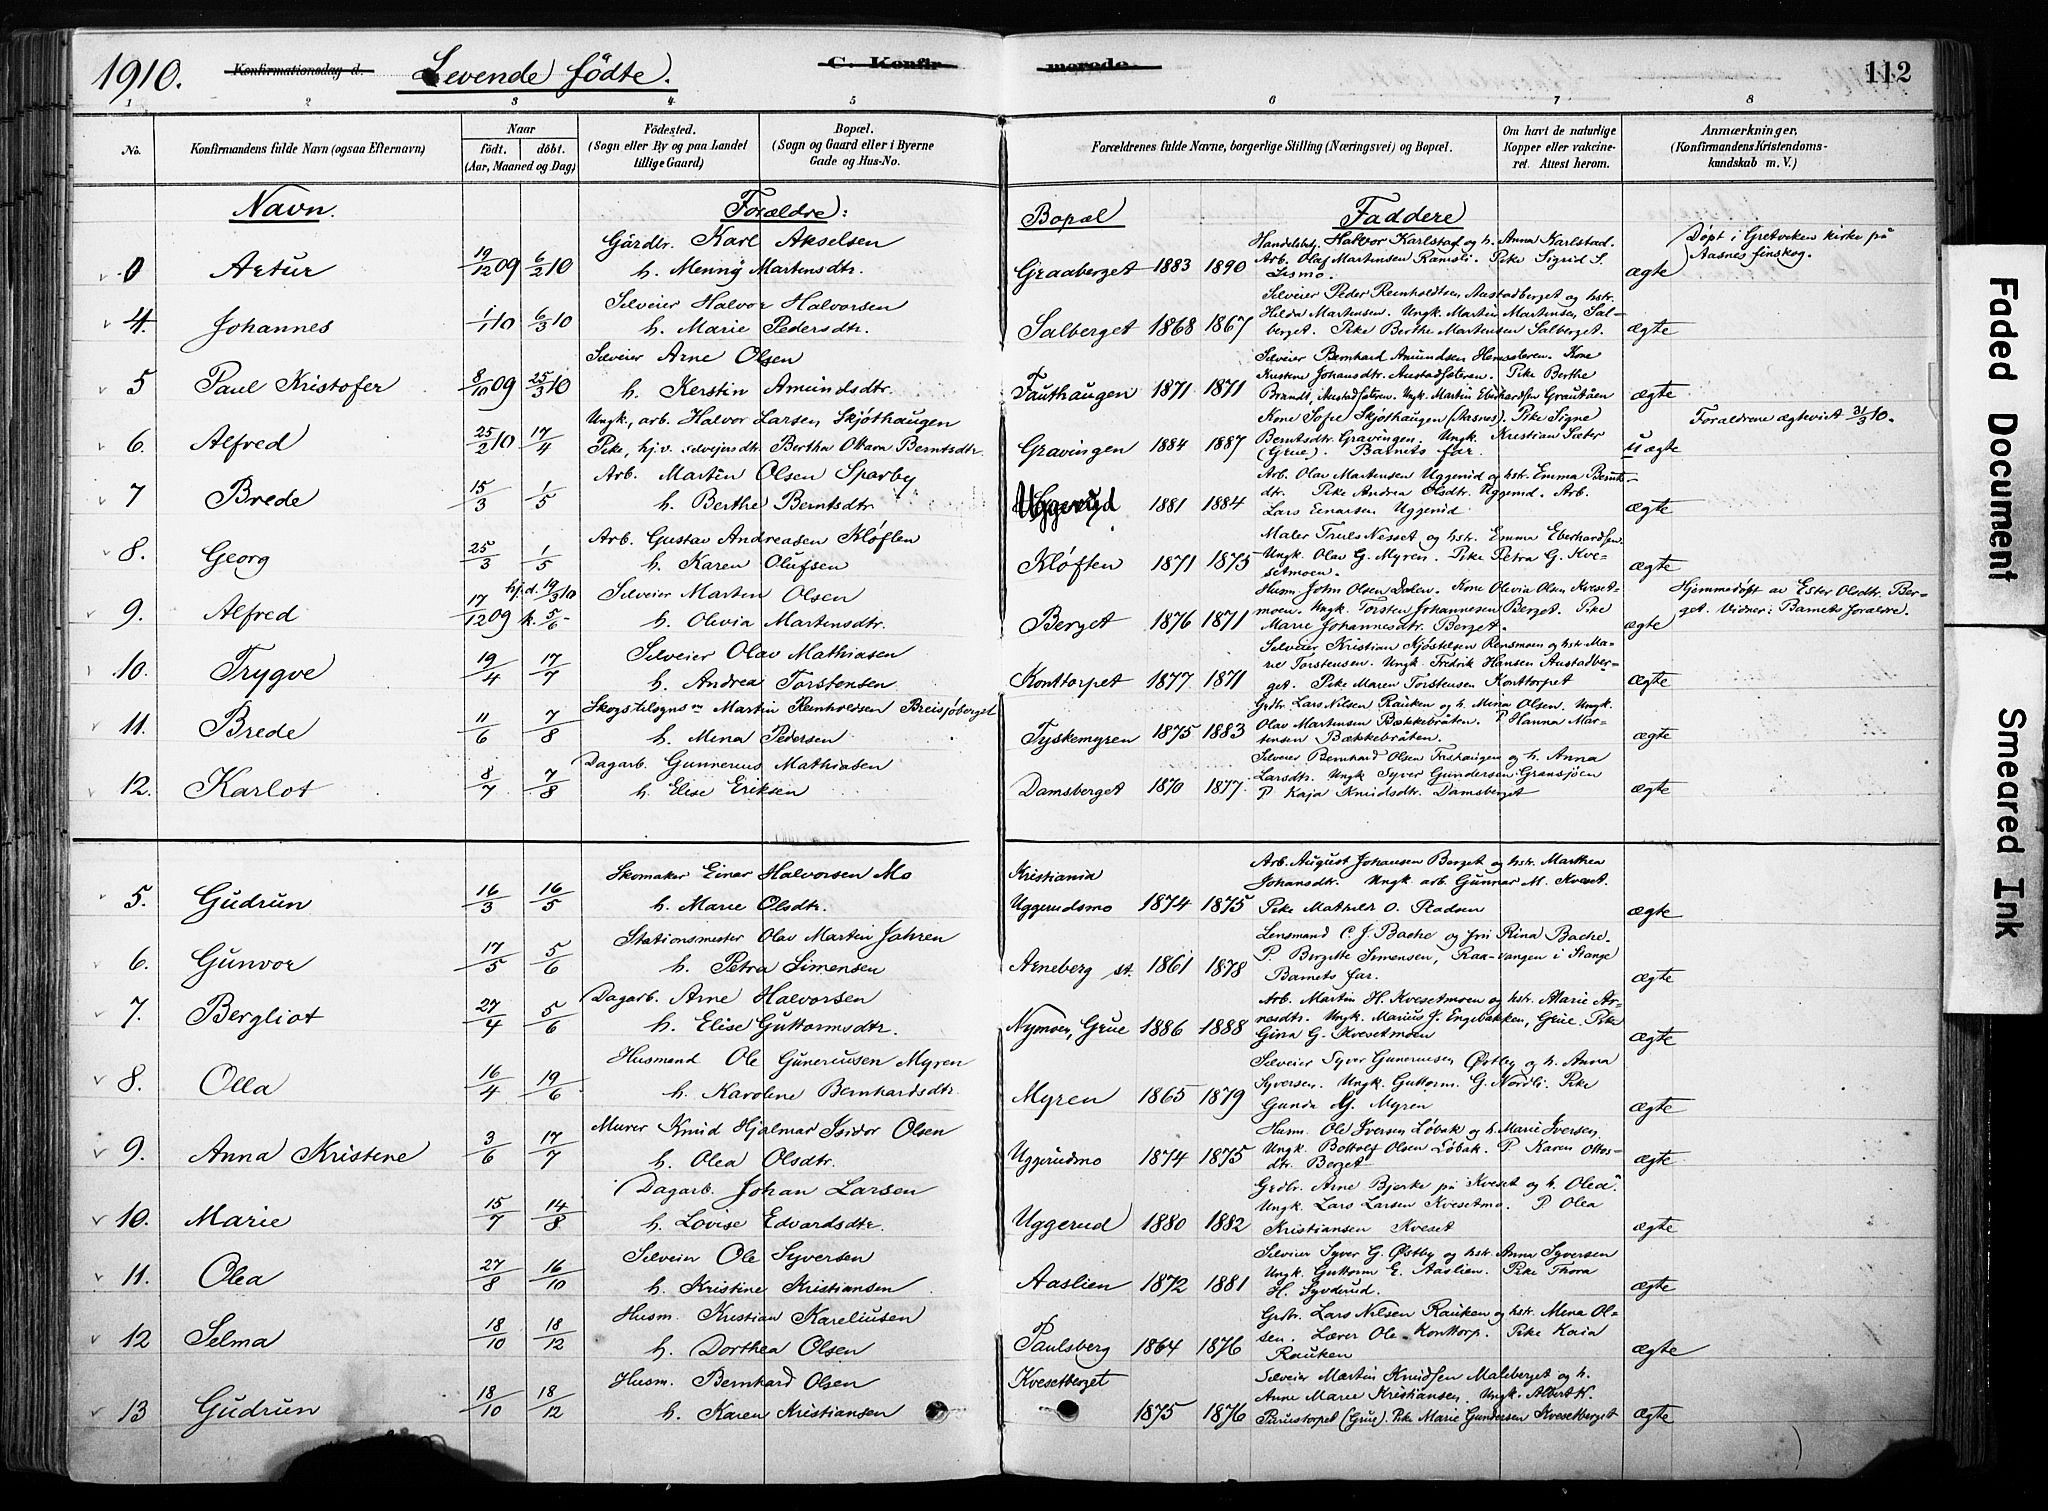 1910. Konfirmationsdag d. Levende fødte. C. Konfirmerede. 112
1 2 3 4 5 6 7 8
No. Konfirmandens fulde Navn (ogsaa Efternavn) Naar født. døbt. (Aar, Maaned og Dag) Fødested. (Sogn eller By og paa Landet tillige Gaard) Bopæl. (Sogn og Gaard eller i Byerne Gade og Hus-No. Forældrenes fulde Navne, borgerlige Stilling (Næringsvei) og Bopæl. Om havt de naturlige Kopper eller vakcineret. Attest herom. Anmærkninger, (Konfirmandens Kristendomskundskab m. V.)
Navn. Forældre: Bopæl Faddere
Gårdbr. Karl Akselsen Handelsbetj. Halvor Karlstad og h. Anna Karlstad. Døpt i Gretveken kirke på
0 Artur 19/12 09 6/2 10 h. Menny Martensdtr. Graaberget 1883 1890 Arb. Olaf Martensen Ramsli. Pike Sigrid S. Lismo. ægte Aasnes finskog.
Selveier Halvor Halvorsen Selveier Peder Reinholdtsen Austadberget og hstr.
4. Johannes 1/1 10 6/3 10 h. Marie Pedersdtr. Salberget 1868 1867 Hilda Martensen. Ungk. Martin Martensen, Salberget. Pike Berthe Martensen Salberget. ægte
Selveier Arne Olsen Selveier Bernhard Amundsen. Kone
5 Paul Kristofer 8/10 09 25/3 10 h. Kerstin Amundsdtr. Fauthaugen 1871 1871 Kristine Johansdtr. Austadsæteren. Pike Berthe Brandt, Austadsæteren. Ungk. Martin Eberhardsen Grautåen ægte
Ungk., arb. Halvor Larsen Skjøthaugen Kone Sofie Skjøthaugen (Aasnes). Pike Signe Forældrene ægteviet 31/3 10.
6. Alfred 25/2 10 17/4 Pike, hj. v. selveiersdtr. Bertha Okara Berntsdtr. Gravingen 1884 1887 Berntsdtr. Gravingen. Ungk. Kristian Sæter (Grue). Barnets far. uægte
Arb. Martin Olsen Sparby Arb. Olav Martensen Uggerud og hstr. Emma Berntsdtr.
7 Brede 15/3 1/5 h. Berthe Berntsdtr. Uggerud 1881 1884 Pike Andrea Olsdtr. Uggerud. Arb. Lars Einarsen Uggerud ægte
Arb. Gustav Andreasen Kløften Maler Truls Nesset og hstr. Emma Eberhardsen.
8. Georg 25/3 1/5 h. Karen Olufsen Kløften 1871 1875 Ungk. Olav G. Myren. Pike Petra G. Kvesetmoen. ægte
hj.d. 19/3 10 Selveier Martin Olsen Husm. John Olsen Dolen. Kone Olivia Olsen Kvesetmoen. Hjemmedøpt av Ester Olsdtr. Berget.
9. Alfred 17/12 09 k. 5/6 h. Olivia Martensdtr. Berget 1876 1871 Ungk. Torsten Johannesen Berget. Pike Marie Johannesdtr. Berget. ægte Vidner: Barnets forældre.
Selveier Olav Mathiasen Selveier Kristian Kjøstelsen Rensmoen og hstr. Marie
10. Trygve 19/4 17/7 h. Andrea Torstensen Konttorpet 1877 1871 Torstensen. Ungk. Fredrik Hansen Austadberget. Pike Maren Torstensen Konttorpet ægte
Skogstilsynsm. Martin Reinholdsen Breisjøberget Grdbr. Lars Nilsen Rauken og h. Mina Olsen. Ungk.
11. Brede 11/6 7/8 h. Mina Pedersen Tyskemyren 1875 1883 Olav Martensen Bækkebråten. P. Hanna Martensen Bækkebråten. ægte
Dagarb. Gunnerius Mathiasen Selveier Bernhard Olsen og h. Anna
12. Karlot 8/7 7/8 h. Elise Eriksen Damsberget 1870 1877 Larsdtr. Ungk. Syver Gundersen Gransjøen P. Kaja Knudsdtr. Damsberget ægte
Skomaker Einar Halvorsen Mo Kristiania Arb. August Johansen Berget og hstr. Marthea
5. Gudrun 16/3 16/5 h. Marie Olsdtr. Uggerudsmo 1874 1875 Johansdtr. Ungk. arb. Gunnar M. Kveset. Pike Mathilde O. ægte
Stationsmester Olav Martin Jahren Lensmand C. J. Bache og fru Rina Bache.
6. Gunvor 17/5 5/6 h. Petra Simensen Arneberg st. 1861 1878 P. Bergitte Simensen, Raa-vangen i Stange Barnets far. ægte
Dagarb. Arne Halvorsen Arb. Martin H. Kvesetmoen og hstr. Marie Arnesdtr.
7. Bergliot 27/4 5/6 h. Elise Guttormsdtr. Nymoen, Grue 1886 1888 Ungk. Marius J. Engebakken, Grue. Pike Gina G. Kvesetmoen ægte
Husmand Ole Gunerussen Myren Selveier Syver Gunerussen Østby og h. Anna
8. Olla 16/4 19/6 h. Karoline Bernhardsdtr. Myren 1865 1879 Syversen. Ungk. Guttorm G. Nordli. Pike Gunda M. Myren ægte
Murer Knud Hjalmar Isidor Olsen Husm. Ole Iversen Løbak og h. Marie Iversen
9. Anna Kristine 3/6 17/7 h. Olea Olsdtr. Uggerudmo 1874 1875 Ungk. Bottolf Olsen Løbak. P. Karen Ottosdtr. Berget ægte
Dagarb. Johan Larsen Grdbr. Arne Bjerke på Kveset og h. Olea.
10. Marie 15/7 14/8 h. Lovise Edvardsdtr. Uggerud 1880 1882 Ungk. Lars Larsen Kvesetmo. P. Olea Kristiansen Kveset ægte
Selveier Ole Syversen Selveier Syver G. Østby og hstr. Anna Syversen
11. Olea 27/8 16/10 h. Kristine Kristiansen Aaslien 1872 1881 Ungk. Guttorm E. Aaslien. Pike Thora H. Syverud. ægte
Husm. Kristian Kareliusen Grdbr. Lars Nilsen Rauken og hstr. Mina Olsen.
12 Selma 18/10 18/12 h. Dorthea Olsen Paulsberg 1864 1876 Lærer Ole Konttorp. Pike Kaia Rauken ægte
Husm. Bernhard Olsen Kvesetberget Selveier Martin Knudsen Maleberget og h.
13 Gudrun 18/10 18/12 h. Karen Kristiansen 1875 1876 Anne Marie Kristiansen. Ungk. Albert K. (Grue). Pike Marie Gundersen Kvesetberget ægte
Faded Document
Smeared Ink